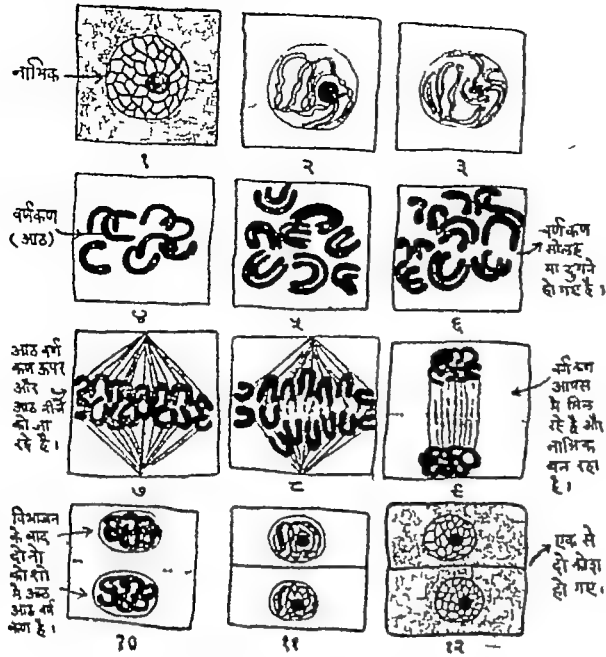 नाभिक
१
२
३
वर्णकण
(आठ)
४
५
६
वर्णकण
सोलह
या दुगने
हो गए है।
आठ वर्ण
कण ऊपर
और
आठ नीचे
को जा
रहे है।
७
८
९
वर्णकण
आपस
मे मिल
रहे है और
नाभिक
बन रहा
है।
विभाजन
के बाद
दोनो
कोशो
मे आठ
आठ वर्ण
कण है।
१०
११
१२
एक से
दो कोश
हो गए।